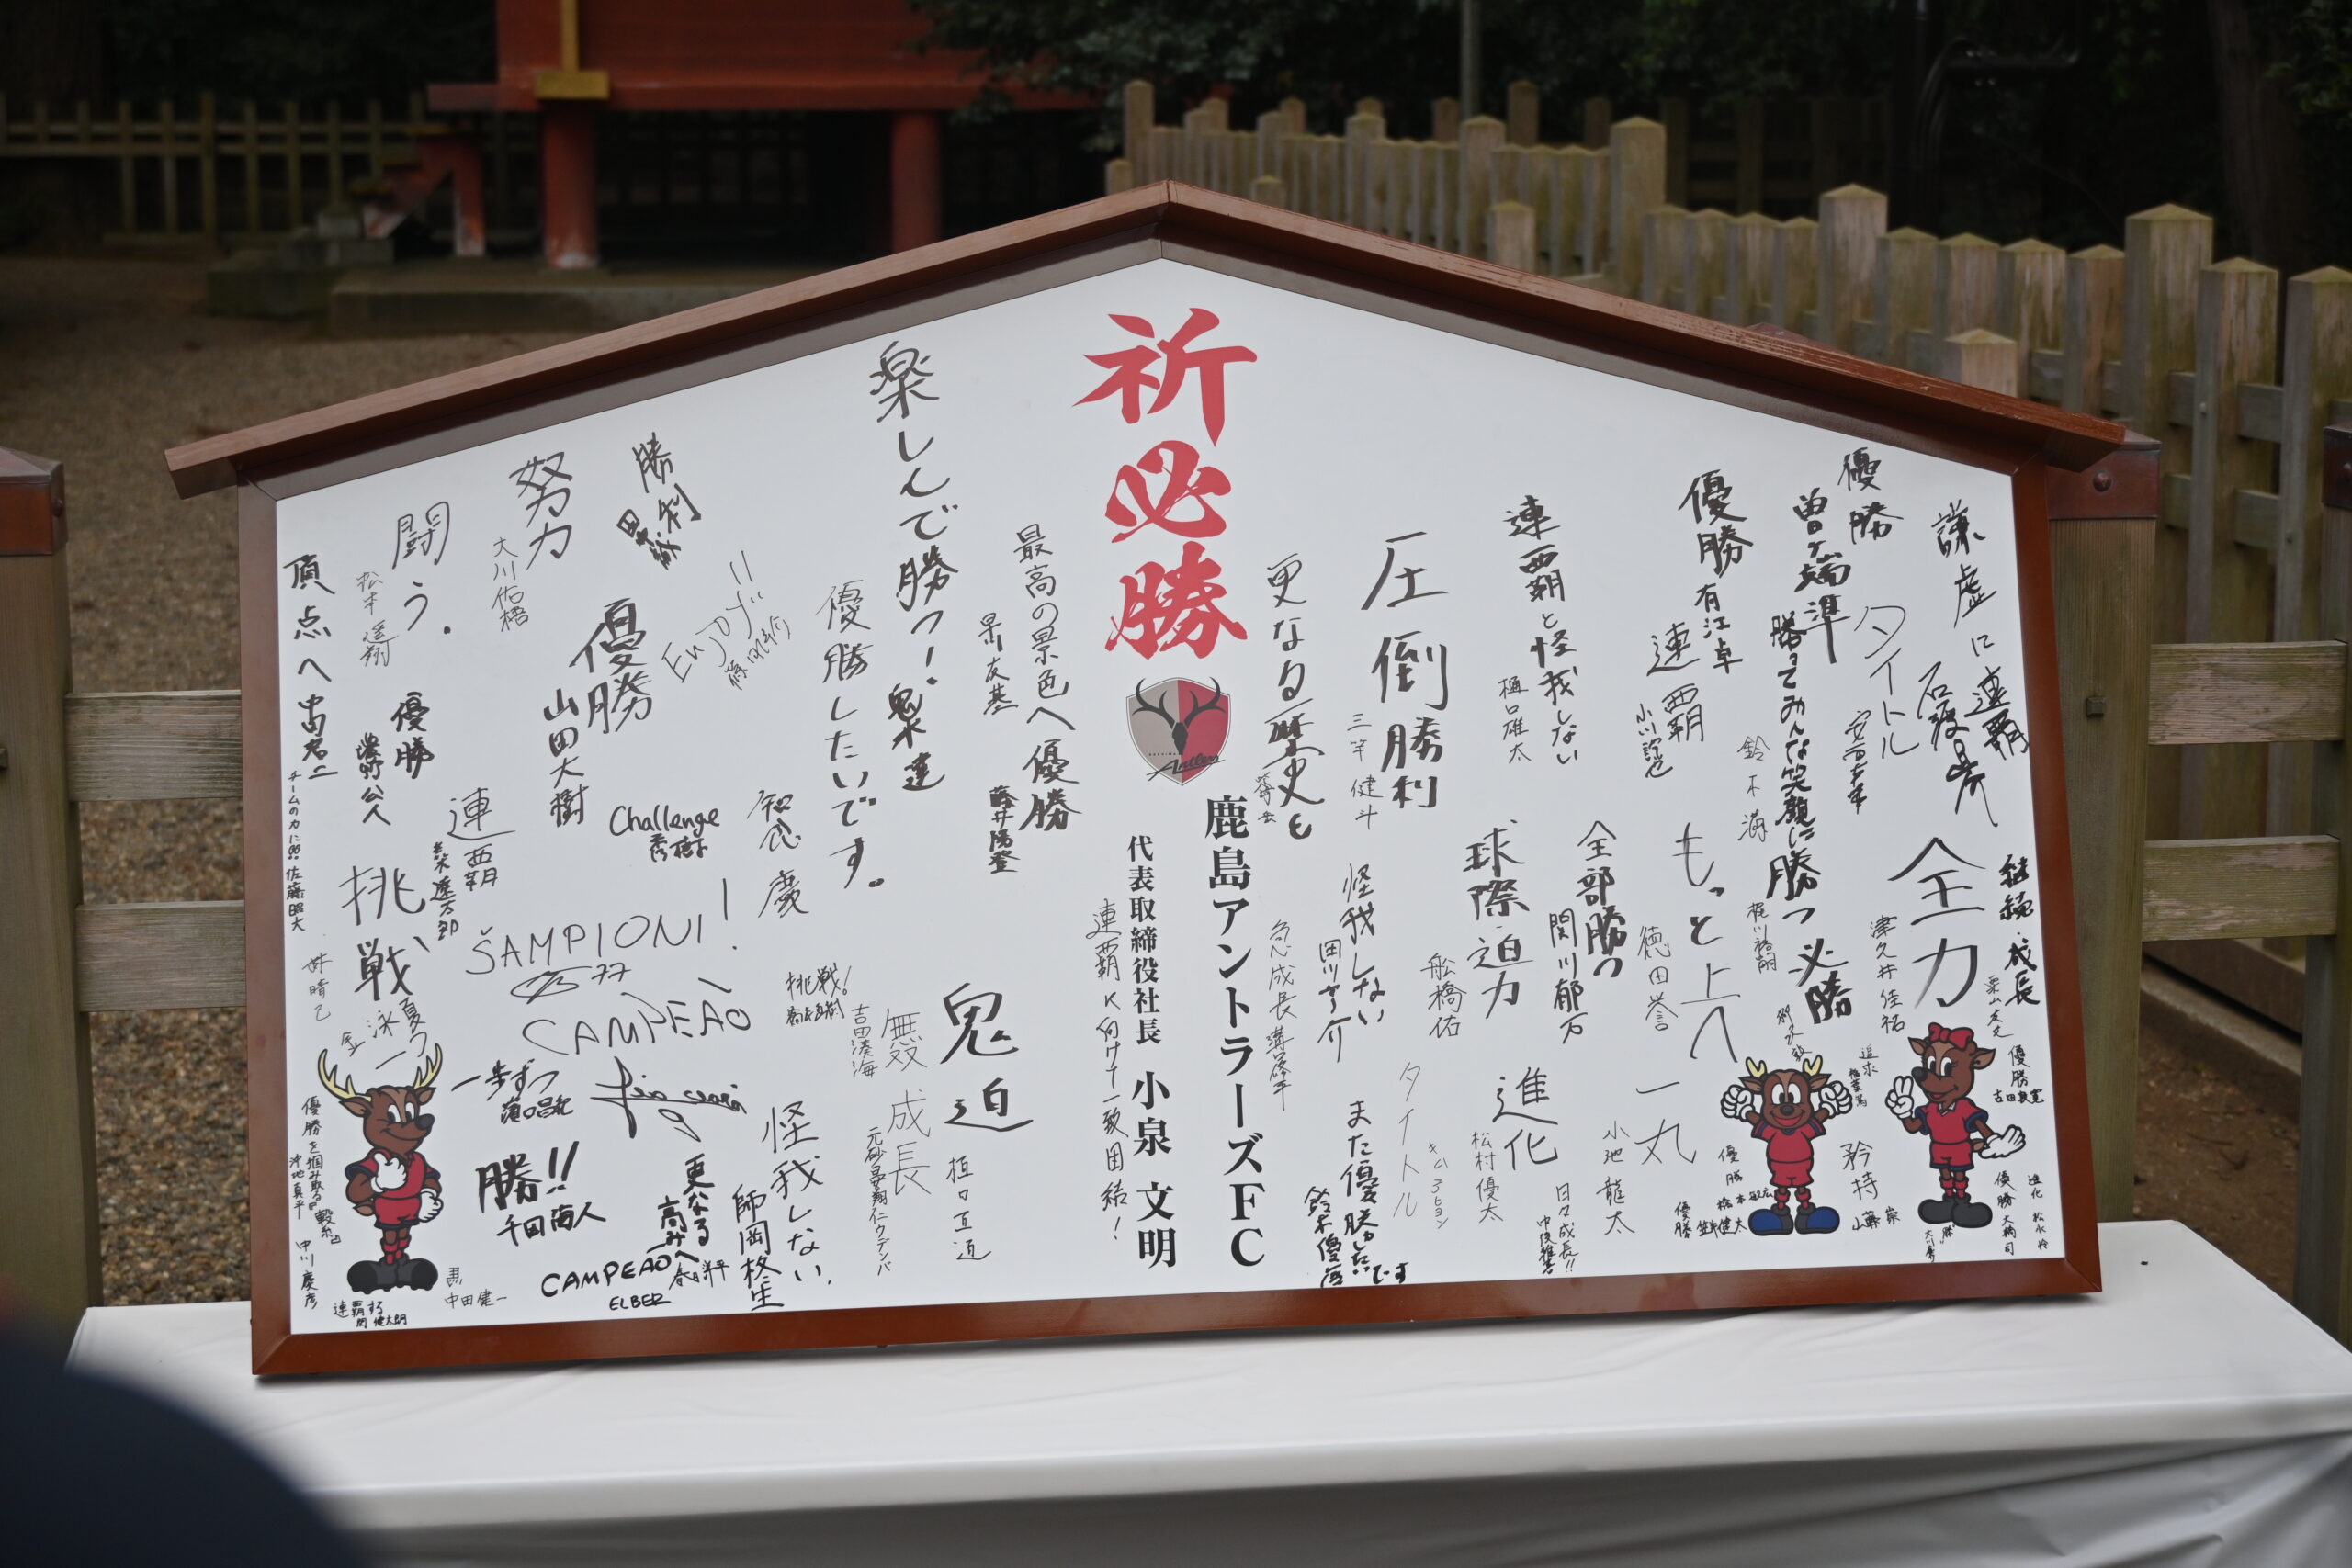 祈必勝
鹿島アントラーズFC
代表取締役社長 小泉 文明
謙虚に連覇
優勝
曽ケ端 準
タイトル
優勝
有江 卓
勝ってみんな笑顔に
勝つ
梶川裕嗣
連覇
小川諒也
鈴木 海
連覇と怪我しない
樋口雄太
圧倒
勝利
三竿 健斗
更なる歴史を
全力
津久井 佳祐
継続・成長
必勝
もっと上へ
徳田誉
全部勝つ
関川郁万
球際 迫力
船橋佑
怪我しない
田川亨介
急成長
溝口修平
進化
松村優太
一丸
小池 龍太
タイトル
キムテヒョン
また優勝したいです
鈴木優磨
日々成長!!
優勝
古田敦寛
追求
優勝
橋本
優勝
笠井健太
矜持
山藤 崇
優勝
大橋 司
進化
松永 怜
最高の景色へ
早川友基
優勝
藤井陽登
連覇に向けて一致団結!
楽しんで勝つ!
優勝したいです。
知念 慶
鬼迫
植田直通
無双
吉田湊海
成長
元砂晏翔仁ウデンバ
勝利
努力
大川佑梧
Enjoy!!
優勝
山田大樹
闘う.
松本遥翔
頂点へ
優勝
濃野公人
チームの力に!!! 佐藤昭大
連覇
Challenge
秀樹
挑戦、
ŠAMPIONI!
77
CAMPEÃO
挑戦!
一歩ずつ
溝口昌紀
勝!!
千田海人
更なる高みへ
春日洋平
CAMPEAO
ELBER
怪我しない.
師岡柊生
優勝を掴み取る
沖地真平
中川 慶彦
中田健一
連覇する
関 健太朗